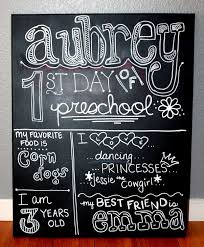 aubrey
1ST DAY OF
preschool
MY FAVORITE
FOOD IS
corn
dogs
I AM
3 YEARS
OLD
I ♡♡♡♡
...dancing...
PRINCESSES...
jessie the Cowgirl
my BEST FRIEND is
emma